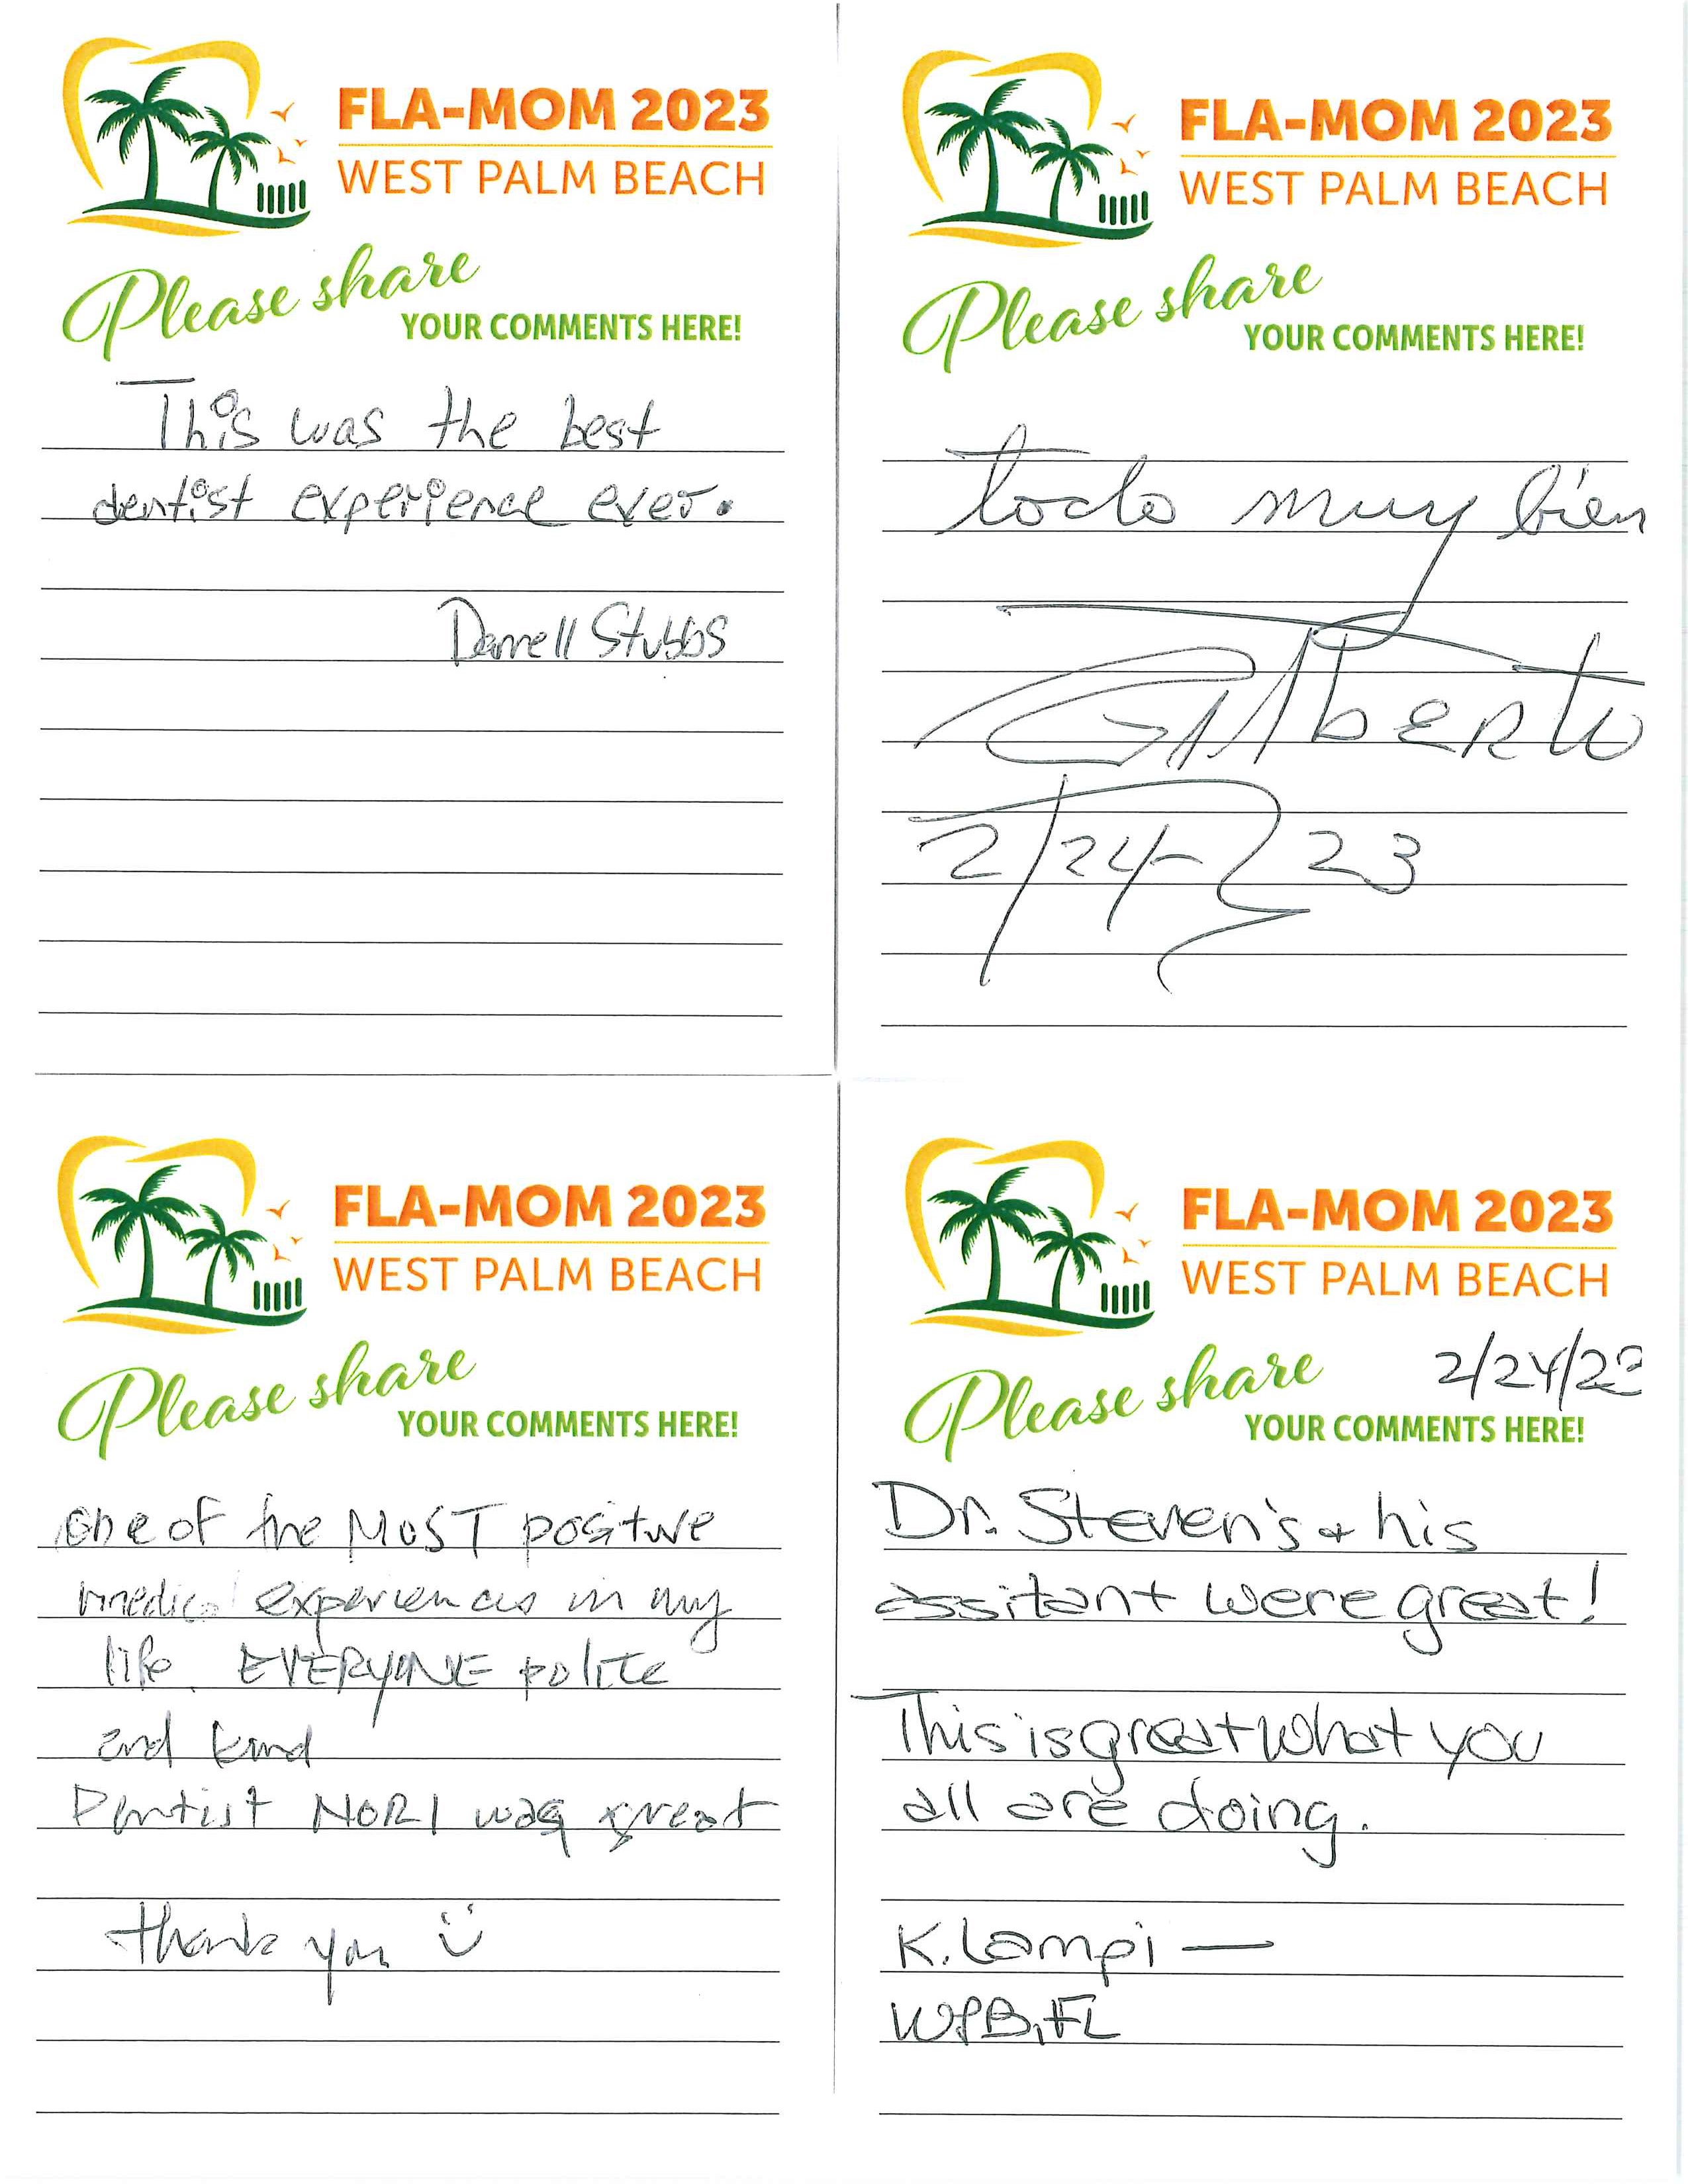 FLA-MOM 2023
WEST PALM BEACH
Please share
YOUR COMMENTS HERE!
This was the best
dentist experience ever.
Darrell Stubbs
FLA-MOM 2023
WEST PALM BEACH
Please share
YOUR COMMENTS HERE!
todo muy bien
Gilberto
2/24/23
FLA-MOM 2023
WEST PALM BEACH
Please share
YOUR COMMENTS HERE!
one of the MOST positive
medical experiences in my
life. EVERYONE polite
and kind
Dentist NORI was great
thank you
FLA-MOM 2023
WEST PALM BEACH
2/24/23
Please share
YOUR COMMENTS HERE!
Dr. Steven's & his
assitant were great!
This is great what you
all are doing.
K. Lampi —
WPB, FL